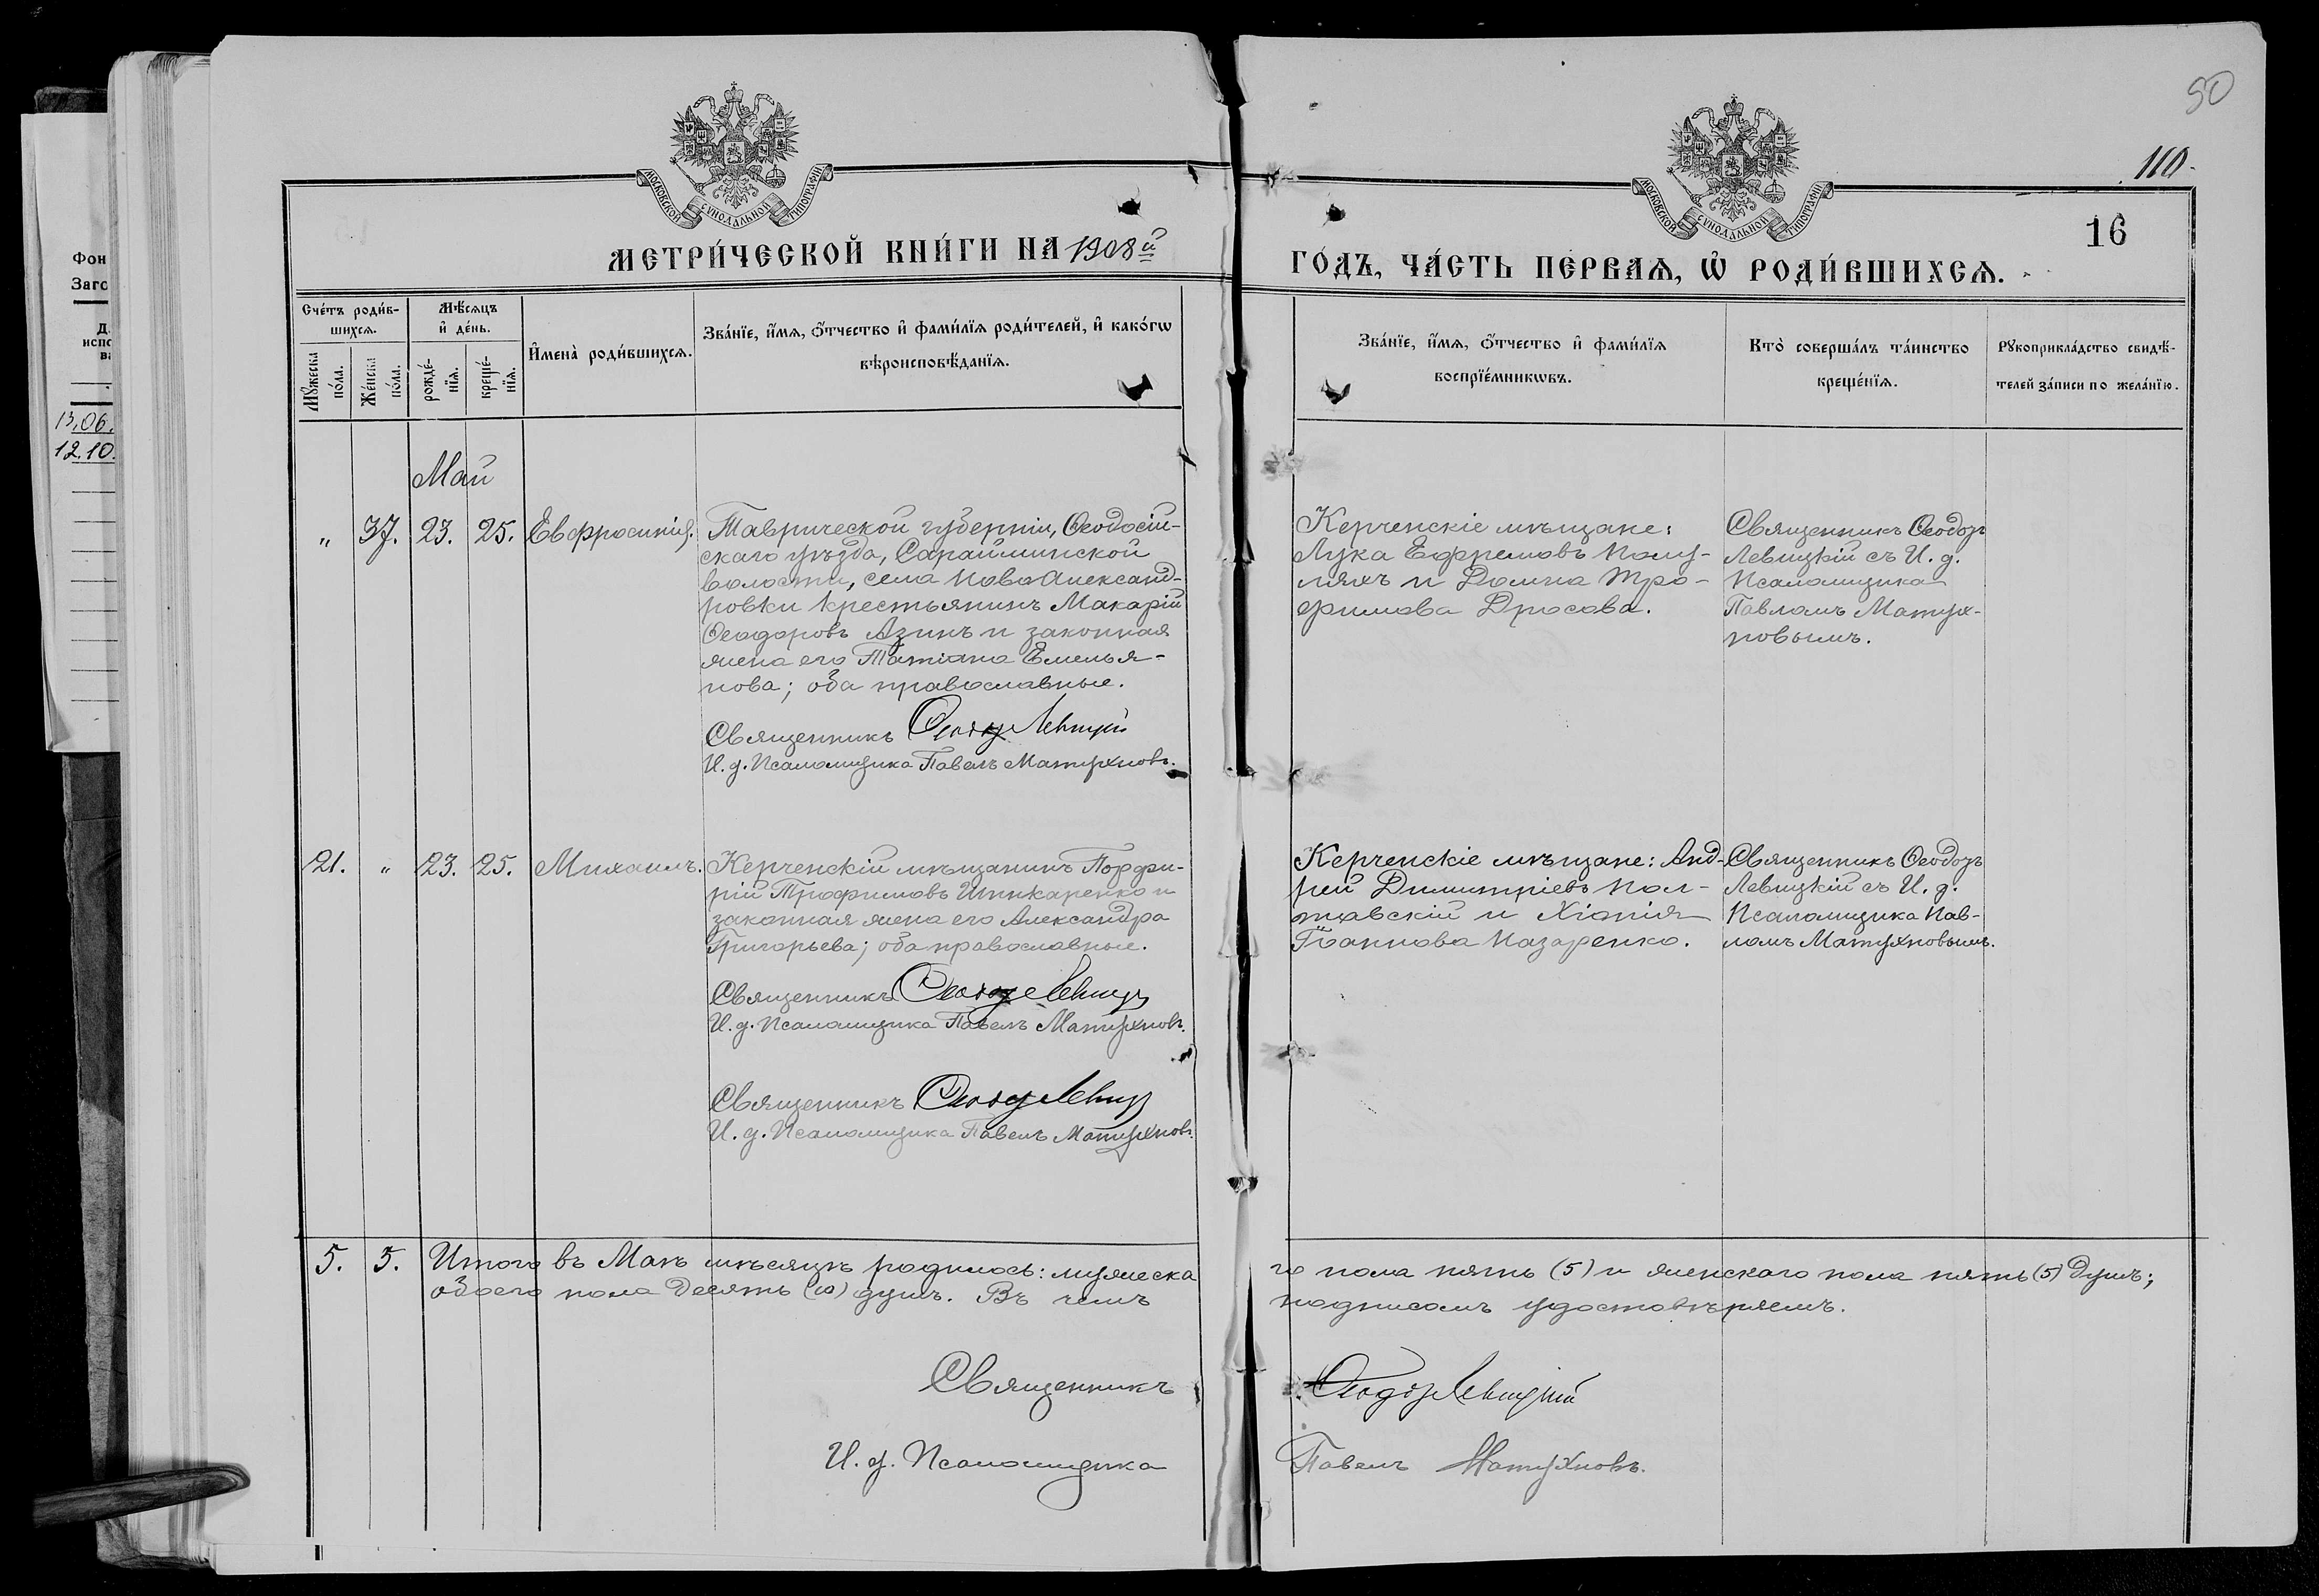 50
110
16
МОСКОВСКОЙ СѴНОДАЛЬНОЙ ТИПОГРАФІИ
МОСКОВСКОЙ СѴНОДАЛЬНОЙ ТИПОГРАФІИ
МЕТРИ́ЧЕСКОЙ КНИ́ГИ НА 1908й
ГО́ДЪ, ЧА́СТЬ ПЕ́РВАѦ, Ѡ҆ РОДИ́ВШИХСѦ.
Сче́тъ роди́в-
шихсѧ.
Мꙋ́жеска
по́ла.
Же́нска
по́ла.
Мѣ́сѧцъ
и҆ де́нь.
рожде́-
нїѧ.
креще́-
нїѧ.
И҆мена̀ роди́вшихсѧ.
Зва́нїе, и҆́мѧ, ѻ҆́тчество и҆ фами́лїѧ роди́телей, и҆ како́гѡ
вѣроисповѣ́данїѧ.
Зва́нїе, и҆́мѧ, ѻ҆́тчество и҆ фами́лїѧ
воспрїе́мникѡвъ.
Кто̀ соверша́лъ та́инство
креще́нїѧ.
Рꙋкоприкла́дство свидѣ́-
телей за́писи по жела́нїю.
Фон
Заго
Д
испо
в
13.06.
12.10.
Май
„ 37. 23. 25. Евфросинія.
Таврической губерніи, Ѳеодосій-
скаго уѣзда, Сарайминской
волости, села Ново Александ-
ровки крестьянинъ Макарій
Ѳеодоровъ Азинъ и законная
жена его Татіана Емелья-
нова; оба православные.
Священникъ Ѳеодоръ Левицкій
И. д. Псаломщика Павелъ Матухновъ.
Керченскіе мѣщане:
Лука Ефремовъ Полу-
ляхъ и Домна Тро-
фимова Дросова.
Священникъ Ѳеодоръ
Левицкій съ И. д.
Псаломщика
Павломъ Матух-
новымъ.
21. „ 23. 25. Михаилъ.
Керченскій мѣщанинъ Порфи-
рій Трофимовъ Шинкаренко и
законная жена его Александра
Григорьева; оба православные.
Священникъ Ѳеодоръ Левицкій
И. д. Псаломщика Павелъ Матухновъ.
Священникъ Ѳеодоръ Левицкій
И. д. Псаломщика Павелъ Матухновъ.
Керченскіе мѣщане: Анд-
рей Димитріевъ Пол-
тавскій и Хіонія
Іоаннова Назаренко.
Священникъ Ѳеодоръ
Левицкій съ И. д.
Псаломщика Пав-
ломъ Матухновымъ.
5. 5. Итого въ Маѣ мѣсяцѣ родилось: мужеска
го пола пять (5) и женскаго пола пять (5) душъ;
обоего пола десять (10) душъ. Въ чемъ
подписомъ удостовѣряемъ.
Священникъ Ѳеодоръ Левицкій
И. д. Псаломщика Павелъ Матухновъ.